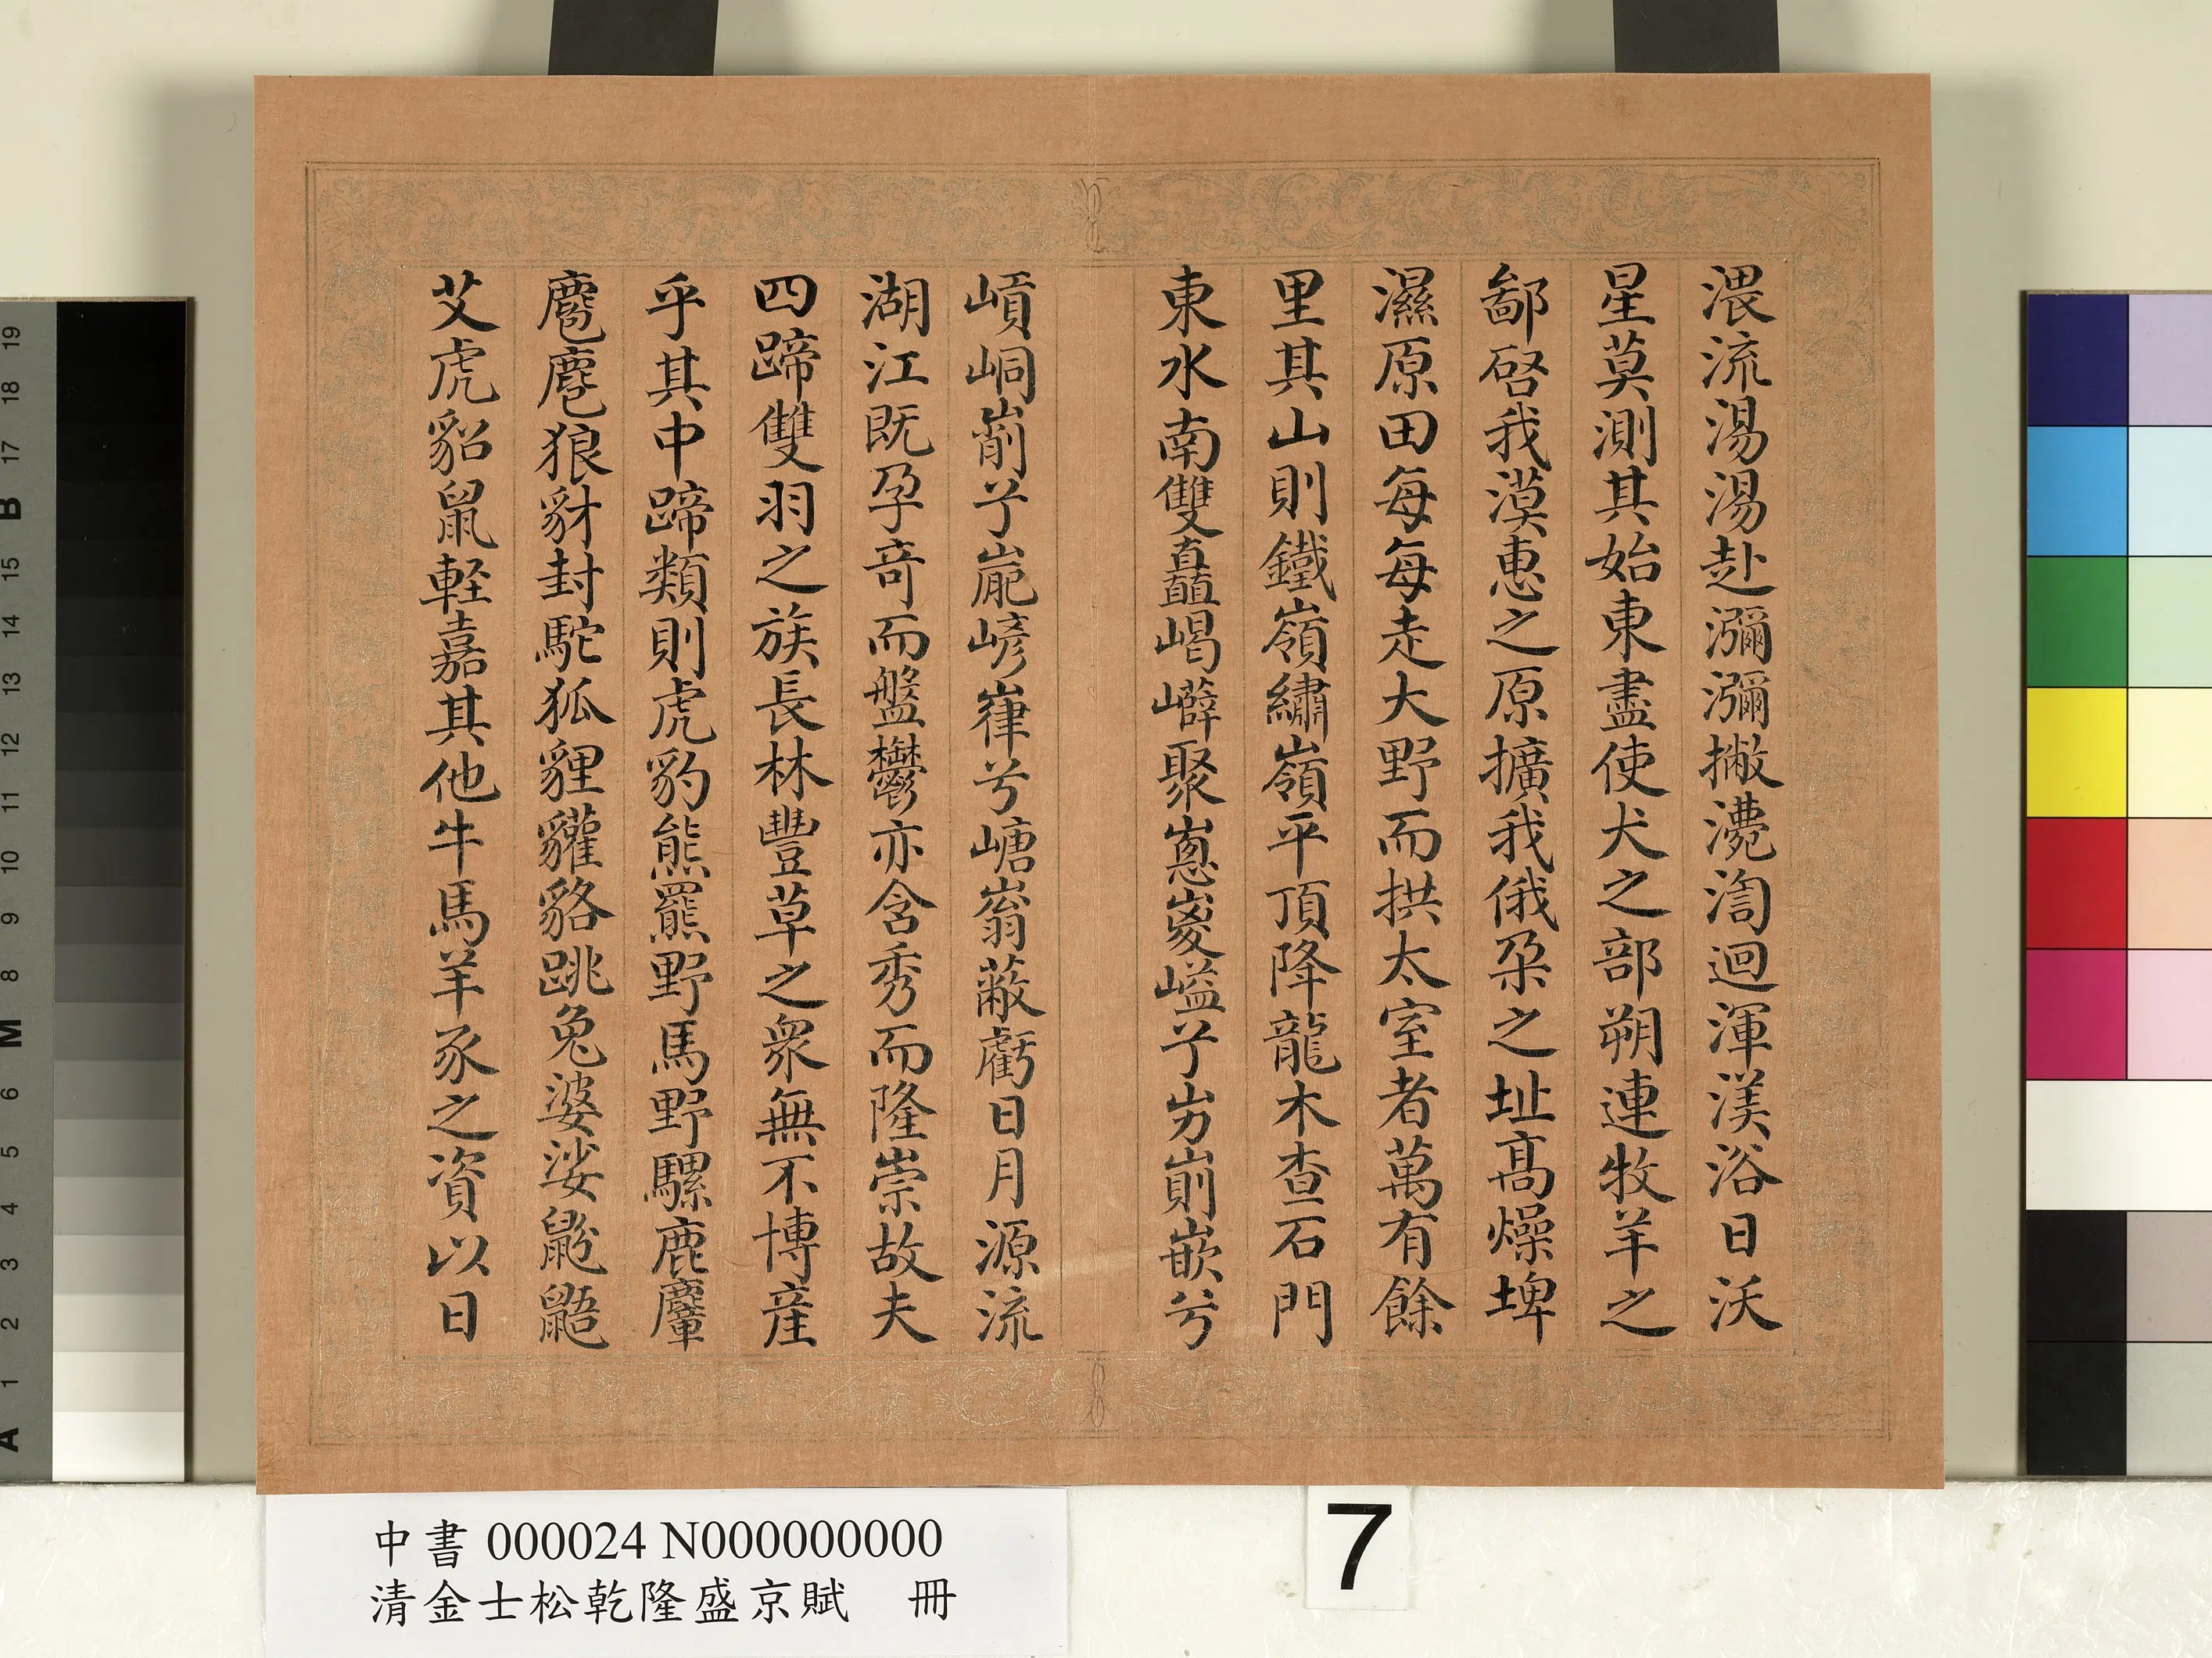 渨流湯湯赴瀰瀰撇灪渹迴渾渼浴日沃
星莫測其始東盡使犬之部朔連牧羊之
鄙啓我漠惠之原擴我俄朶之址髙燥埤
濕原田每每走大野而拱太室者萬有餘
里其山則鐵嶺繡嶺平頂降龍木查石門
東水南雙矗嵑㠔聚嵏嵱兮屴崱嶔兮
崝峒嵛兮巃嵾嵂兮嵣嵡蔽虧日月源流
湖江既孕竒而盤鬱亦含秀而隆崇故夫
四蹄雙羽之族長林豐草之衆無不博産
乎其中蹄類則虎豹熊羆野馬野騾鹿麞
麅麀狼豺封駝狐貍貛貉跳兔婆娑鼢鼯
艾虎貂鼠軽嘉其他牛馬羊豕之資以日
中書 000024 N000000000
清金士松乾隆盛京賦 冊
7
19
18
17
B
16
15
14
13
12
11
10
9
8
M
7
6
5
4
3
2
1
A